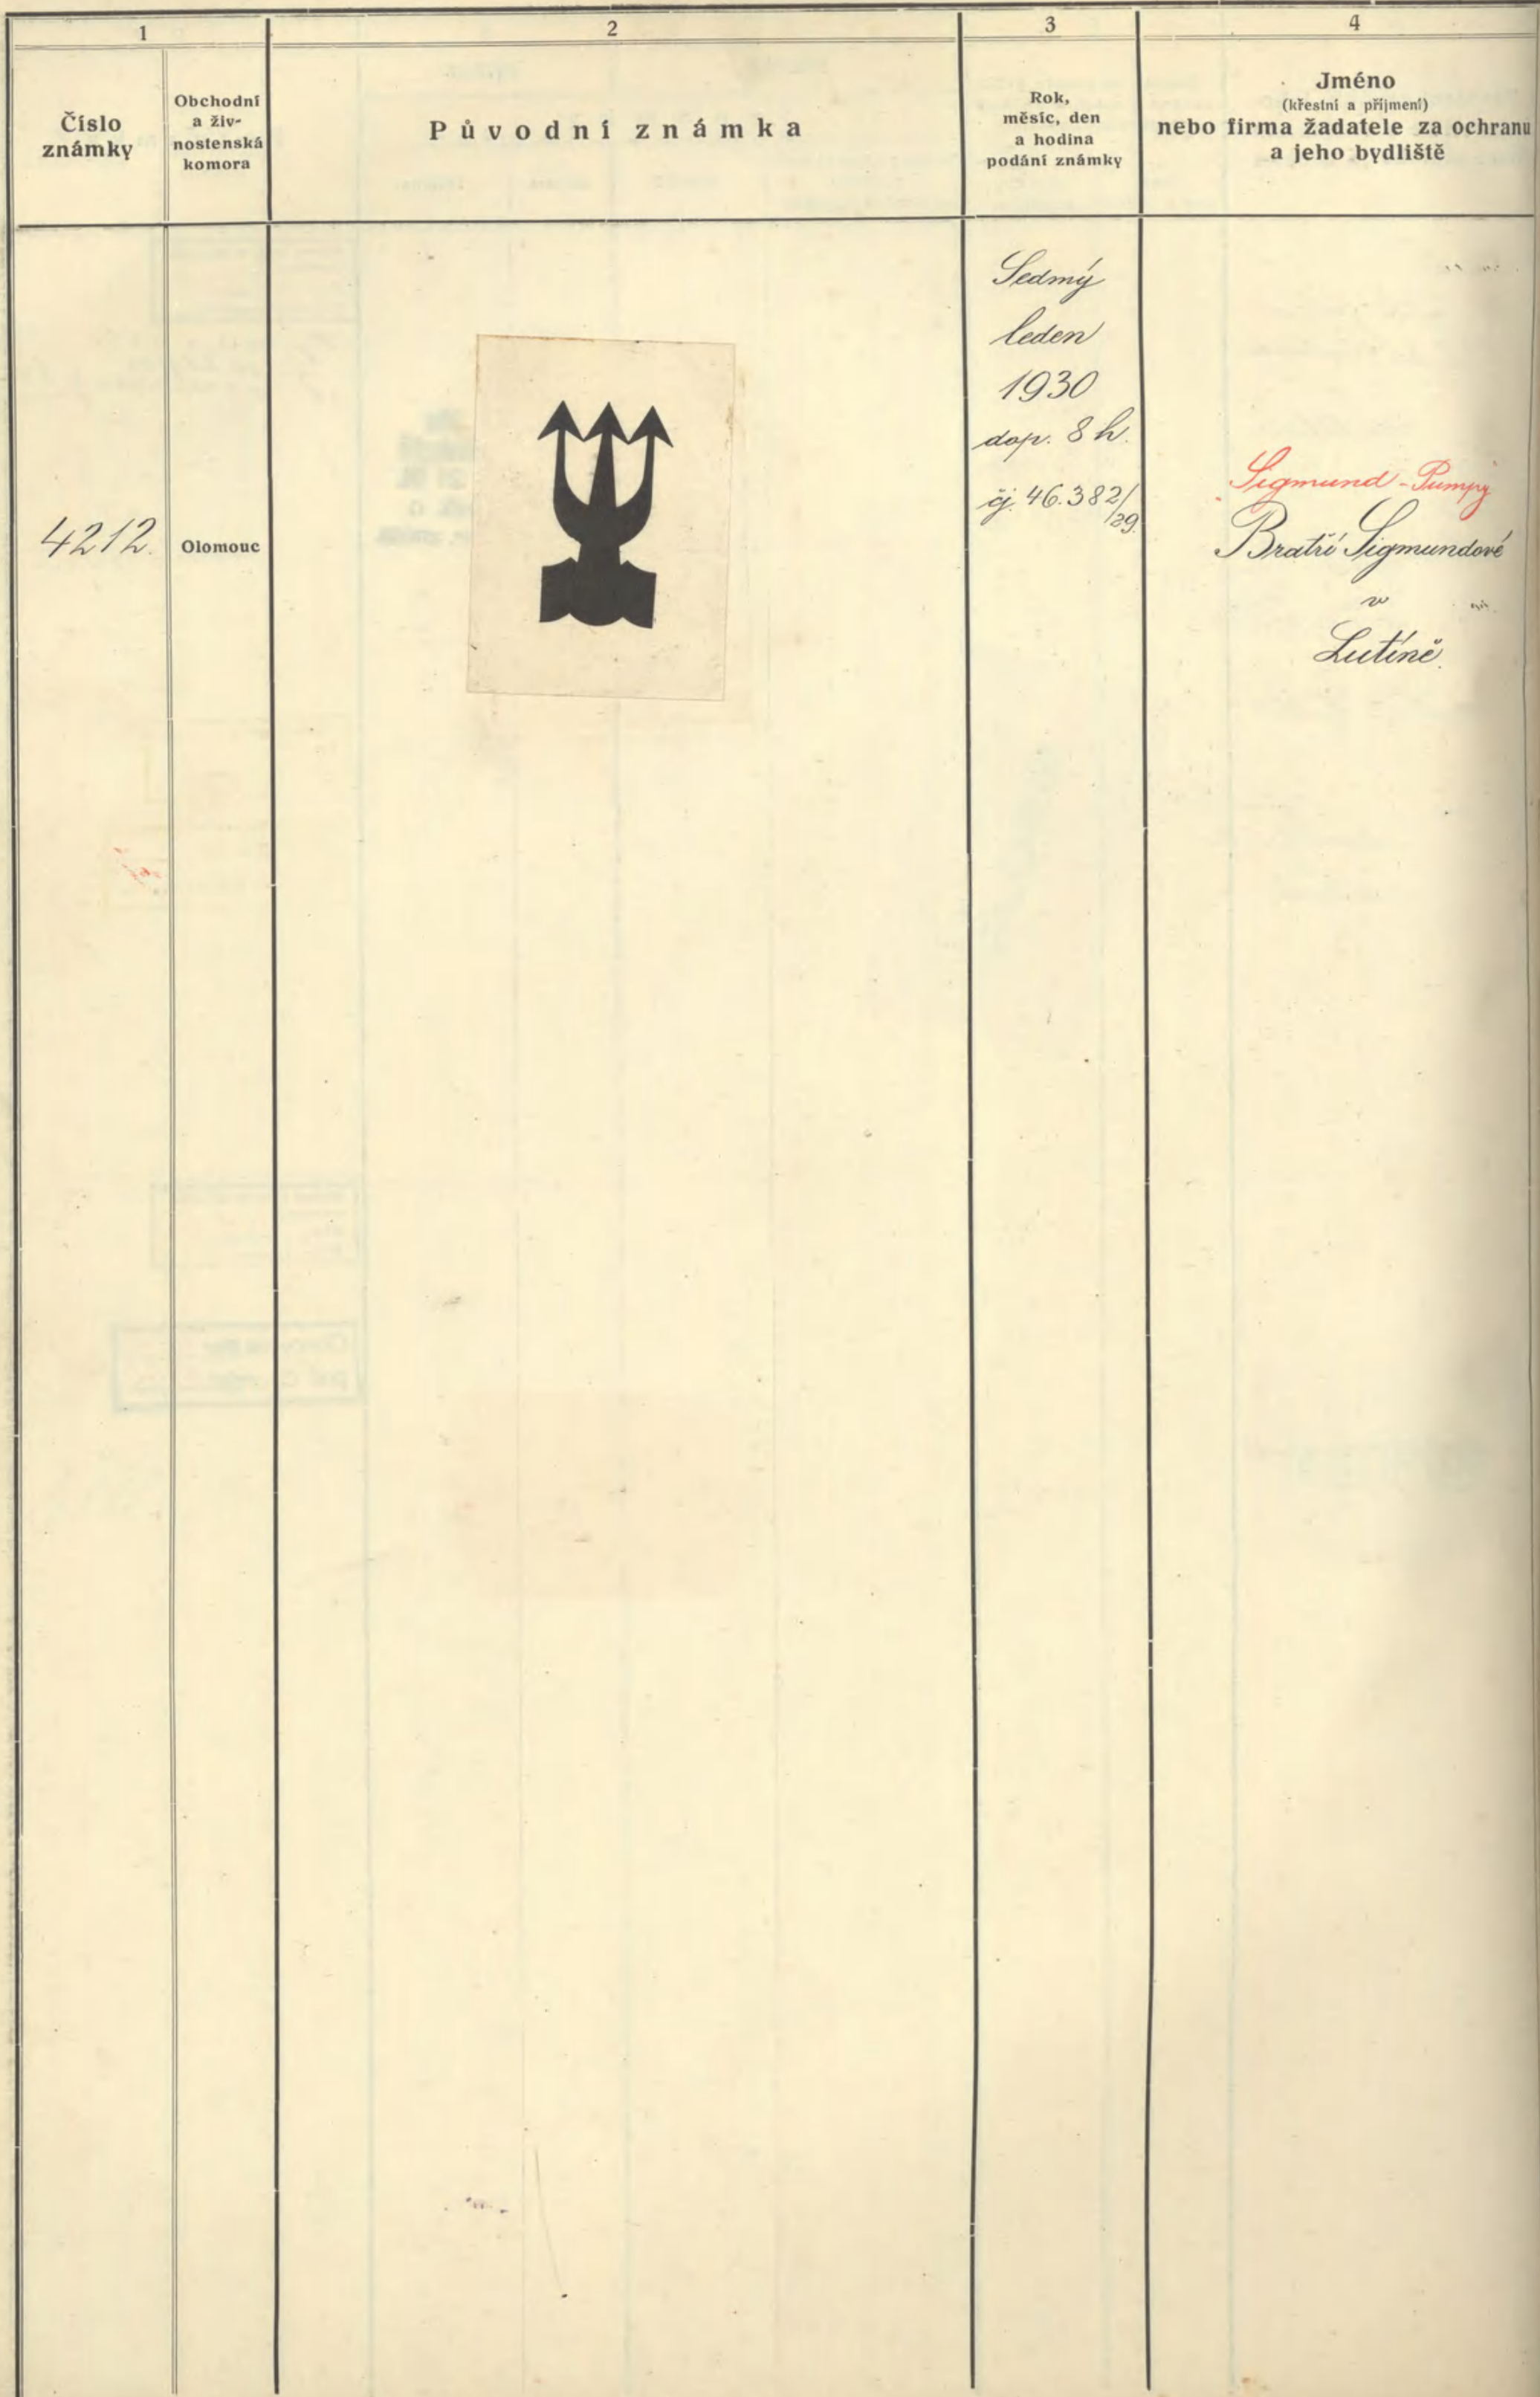 1
2
3
4
Číslo
známky
Obchodní
a živ-
nostenská
komora
Původní známka
Rok,
měsíc, den
a hodina
podání známky
Jméno
(křestní a příjmení)
nebo firma žadatele za ochranu
a jeho bydliště
4212.
Olomouc
Sedmý
leden
1930
dop. 8 h.
čj. 46.382/29.
Sigmund-Pumpy
Bratří Sigmundové
v
Lutíně.